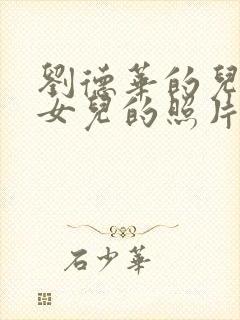 劉德華的兒
女兒的照片
石少華